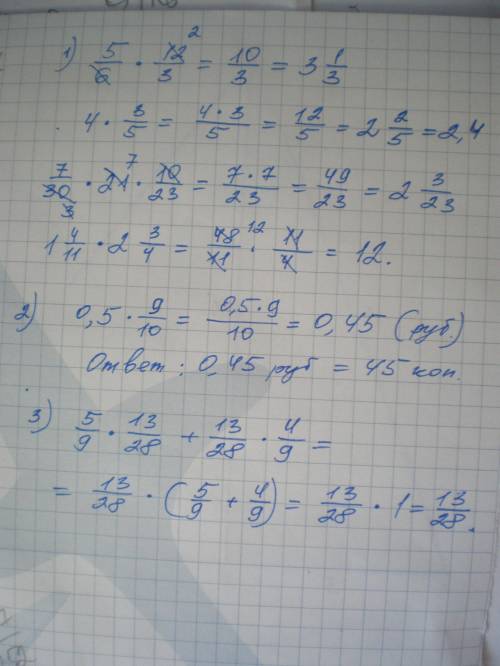 1) 5/6 · 12/3 = 10/3 = 3 1/3
4 · 3/5 = 4·3/5 = 12/5 = 2 2/5 = 2,4
7/30 · 21 · 10/23 = 7·7/23 = 49/23 = 2 3/23
1 4/11 · 2 3/4 = 48/11 · 11/4 = 12.
2) 0,5 · 9/10 = 0,5·9/10 = 0,45 (руб.)
Ответ: 0,45 руб = 45 коп.
3) 5/9 · 13/28 + 13/28 · 4/9 =
= 13/28 · (5/9 + 4/9) = 13/28 · 1 = 13/28.